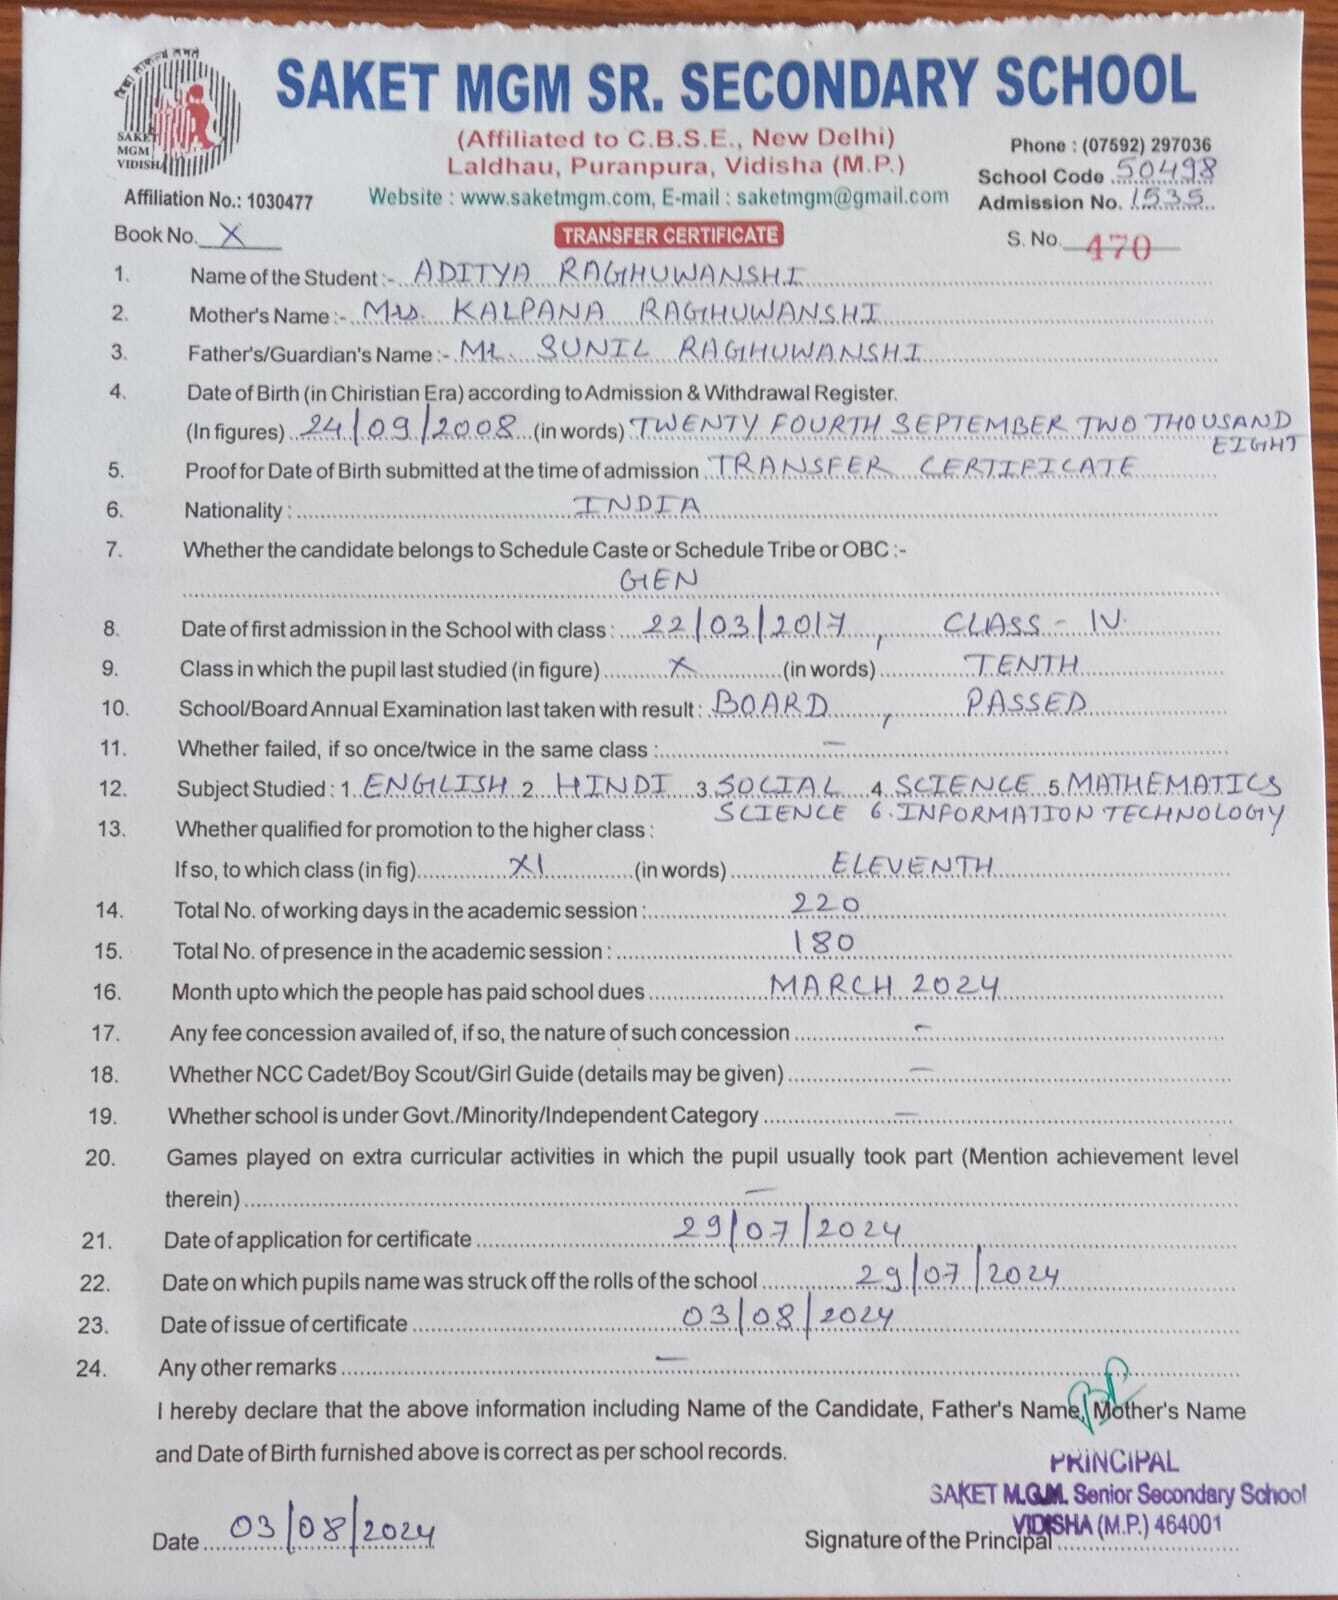 SAKET MGM SR. SECONDARY SCHOOL
(Affiliated to C.B.S.E., New Delhi)
Laldhau, Puranpura, Vidisha (M.P.)
Phone : (07592) 297036
SAKET
MGM
VIDISHA
School Code 50498
Affiliation No.: 1030477
Website : www.saketmgm.com, E-mail : saketmgm@gmail.com
Admission No. 1535
Book No. X
TRANSFER CERTIFICATE
S. No. 470
1. Name of the Student :- ADITYA RAGHUWANSHI
2. Mother's Name :- Mrs. KALPANA RAGHUWANSHI
3. Father's/Guardian's Name :- Mr. SUNIL RAGHUWANSHI
4. Date of Birth (in Chiristian Era) according to Admission & Withdrawal Register.
(In figures) 24/09/2008 (in words) TWENTY FOURTH SEPTEMBER TWO THOUSAND
EIGHT
5. Proof for Date of Birth submitted at the time of admission TRANSFER CERTIFICATE
6. Nationality : INDIA
7. Whether the candidate belongs to Schedule Caste or Schedule Tribe or OBC :-
GEN
8. Date of first admission in the School with class : 22/03/2017, CLASS - IV.
9. Class in which the pupil last studied (in figure) X (in words) TENTH
10. School/Board Annual Examination last taken with result : BOARD, PASSED
11. Whether failed, if so once/twice in the same class : -
12. Subject Studied : 1. ENGLISH 2. HINDI 3. SOCIAL 4. SCIENCE 5. MATHEMATICS
SCIENCE 6. INFORMATION TECHNOLOGY
13. Whether qualified for promotion to the higher class :
If so, to which class (in fig) XI (in words) ELEVENTH
14. Total No. of working days in the academic session : 220
15. Total No. of presence in the academic session : 180
16. Month upto which the people has paid school dues MARCH 2024
17. Any fee concession availed of, if so, the nature of such concession -
18. Whether NCC Cadet/Boy Scout/Girl Guide (details may be given) -
19. Whether school is under Govt./Minority/Independent Category -
20. Games played on extra curricular activities in which the pupil usually took part (Mention achievement level
therein) -
21. Date of application for certificate 29/07/2024
22. Date on which pupils name was struck off the rolls of the school 29/07/2024
23. Date of issue of certificate 03/08/2024
24. Any other remarks -
I hereby declare that the above information including Name of the Candidate, Father's Name, Mother's Name
and Date of Birth furnished above is correct as per school records.
PRINCIPAL
SAKET M.G.M. Senior Secondary School
VIDISHA (M.P.) 464001
Date 03/08/2024
Signature of the Principal